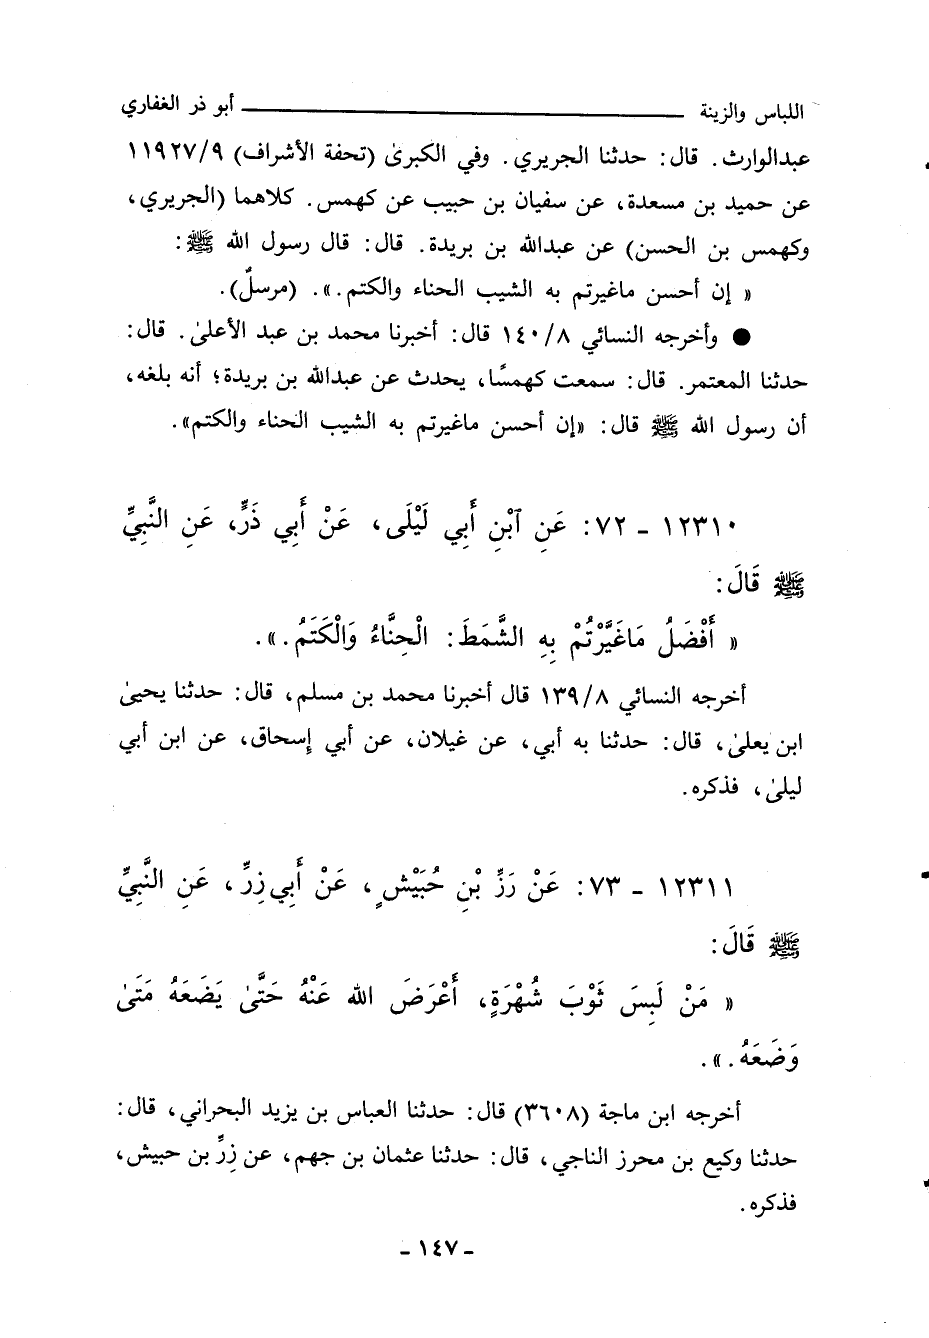 اللباس والزينة ــــــــــــــــ أبو ذر الغفاري
عبدالوارث. قال: حدثنا الجريري. وفي الكبرىٰ (تحفة الأشراف) ١١٩٢٧/٩
عن حميد بن مسعدة، عن سفيان بن حبيب عن كهمس. كلاهما (الجريري،
وكهمس بن الحسن) عن عبدالله بن بريدة. قال: قال رسول الله ﷺ:
« إن أحسن ماغيرتم به الشيب الحناء والكتم.». (مرسلٌ).
● وأخرجه النسائي ١٤٠/٨ قال: أخبرنا محمد بن عبد الأعلىٰ. قال:
حدثنا المعتمر. قال: سمعت كهمسًا، يحدث عن عبدالله بن بريدة؛ أنه بلغه،
أن رسول الله ﷺ قال: «إن أحسن ماغيرتم به الشيب الحناء والكتم».
١٢٣١٠ - ٧٢: عَنِ ٱبْنِ أَبِي لَيْلَى، عَنْ أَبِي ذَرٍّ، عَنِ النَّبِيِّ
ﷺ قَالَ:
« أَفْضَلُ مَاغَيَّرْتُمْ بِهِ الشَّمَطَ: الْحِنَّاءُ وَالْكَتَمُ.».
أخرجه النسائي ١٣٩/٨ قال أخبرنا محمد بن مسلم، قال: حدثنا يحيىٰ
ابن يعلىٰ، قال: حدثنا به أبي، عن غيلان، عن أبي إسحاق، عن ابن أبي
ليلىٰ، فذكره.
١٢٣١١ - ٧٣: عَنْ رَزِّ بْنِ حُبَيْشٍ، عَنْ أَبِي زِرٍّ، عَنِ النَّبِيِّ
ﷺ قَالَ:
« مَنْ لَبِسَ ثَوْبَ شُهْرَةٍ، أَعْرَضَ الله عَنْهُ حَتَّىٰ يَضَعَهُ مَتَىٰ
وَضَعَهُ.».
أخرجه ابن ماجة (٣٦٠٨) قال: حدثنا العباس بن يزيد البحراني، قال:
حدثنا وكيع بن محرز الناجي، قال: حدثنا عثمان بن جهم، عن زِرِّ بن حبيش،
فذكره.
- ١٤٧ -